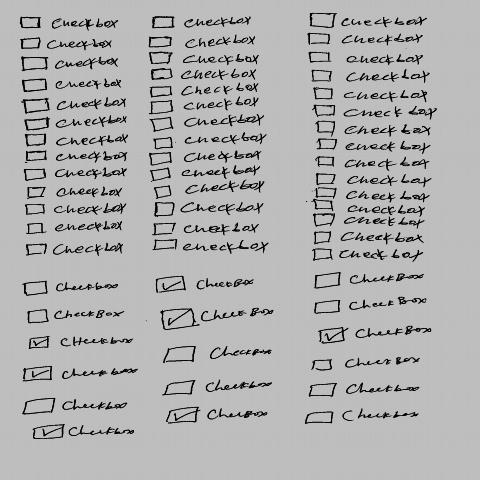 Checkbox
Checkbox
Checkbox
Checkbox
Checkbox
Checkbox
Checkbox
Checkbox
Checkbox
Checkbox
Checkbox
Checkbox
Checkbox
Checkbox
CheckBox
CHeckbox
Checkbox
Checkbox
Checkbox
Checkbox
Checkbox
Checkbox
Checkbox
Checkbox
Checkbox
Checkbox
Checkbox
Checkbox
Checkbox
Checkbox
Checkbox
Checkbox
Checkbox
CheckBox
CheckBox
CheckBox
Checkbox
CheckBox
Checkbox
Checkbox
Checkbox
Checkbox
Checkbox
Checkbox
Checkbox
Checkbox
Checkbox
Checkbox
Checkbox
Checkbox
Checkbox
Checkbox
Checkbox
CheckBox
CheckBox
CheckBox
CheckBox
Checkbox
Checkbox